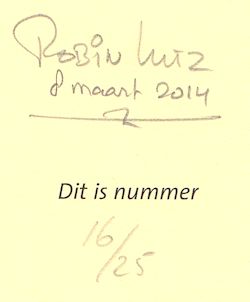 Robin Lutz
8 maart 2014
Dit is nummer
16/25